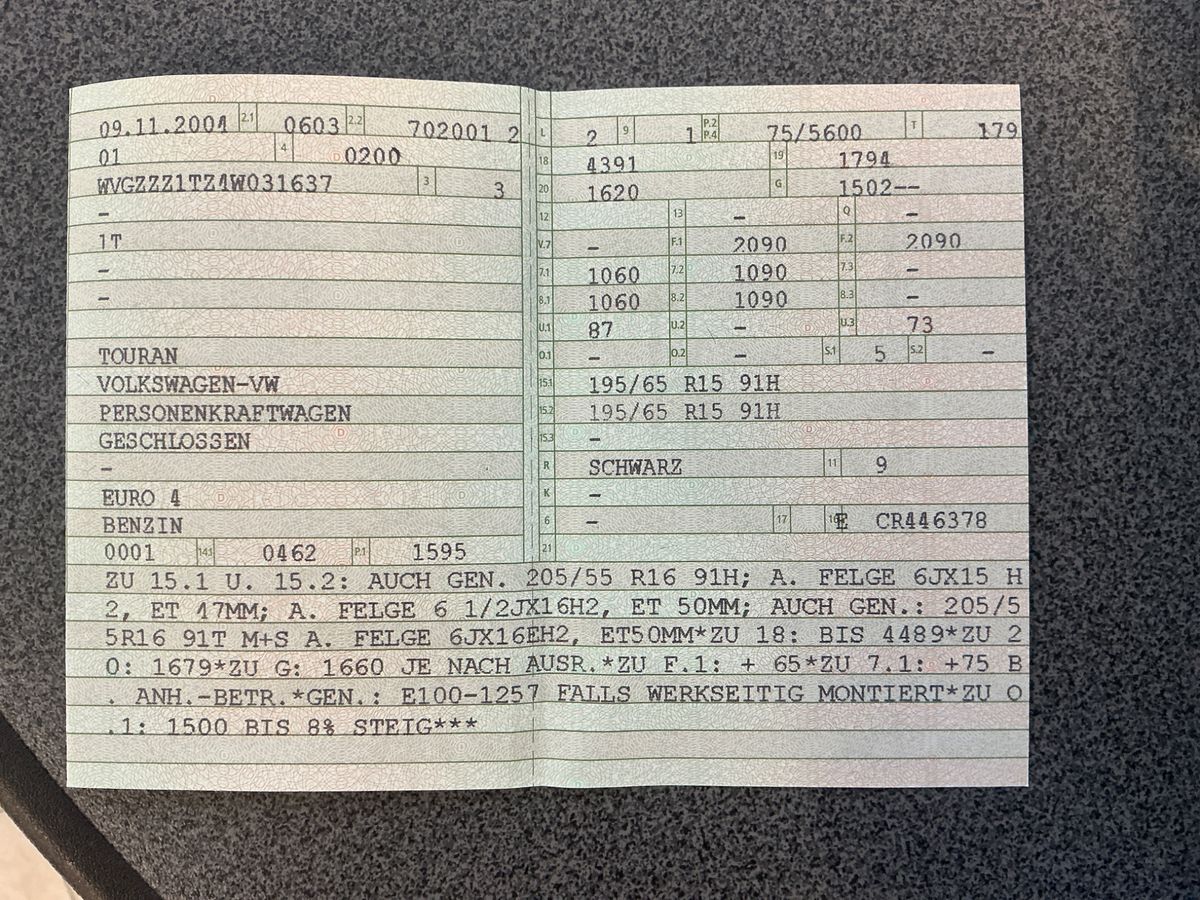 09.11.2004 2.1 0603 2.2 702001 2 L 2 9 1 P.2 P.4 75/5600 T 179
01 4 0200 18 4391 19 1794
WVGZZZ1TZ4W031637 3 3 20 1620 G 1502--
- 12 - 13 - Q -
1T V.7 - F.1 2090 F.2 2090
- 7.1 1060 7.2 1090 7.3 -
- 8.1 1060 8.2 1090 8.3 -
U.1 87 U.2 - U.3 73
TOURAN O.1 - O.2 - S.1 5 S.2 -
VOLKSWAGEN-VW 15.1 195/65 R15 91H
PERSONENKRAFTWAGEN 15.2 195/65 R15 91H
GESCHLOSSEN 15.3 -
- R SCHWARZ 11 9
EURO 4 K -
BENZIN 6 - 17 16 E CR446378
0001 14.1 0462 P.1 1595 21
ZU 15.1 U. 15.2: AUCH GEN. 205/55 R16 91H; A. FELGE 6JX15 H
2, ET 47MM; A. FELGE 6 1/2JX16H2, ET 50MM; AUCH GEN.: 205/5
5R16 91T M+S A. FELGE 6JX16EH2, ET50MM*ZU 18: BIS 4489*ZU 2
0: 1679*ZU G: 1660 JE NACH AUSR.*ZU F.1: + 65*ZU 7.1: +75 B
. ANH.-BETR.*GEN.: E100-1257 FALLS WERKSEITIG MONTIERT*ZU O
.1: 1500 BIS 8% STEIG***